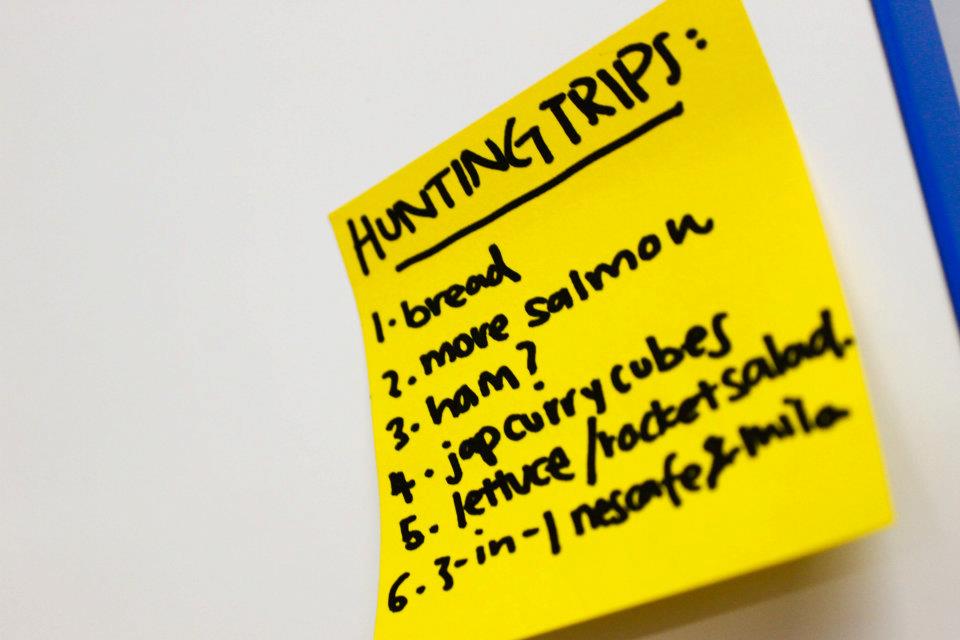 HUNTING TRIPS:
1. bread
2. more salmon
3. ham?
4. jap curry cubes
5. lettuce/rocket salad.
6. 3-in-1 nescafe & milo